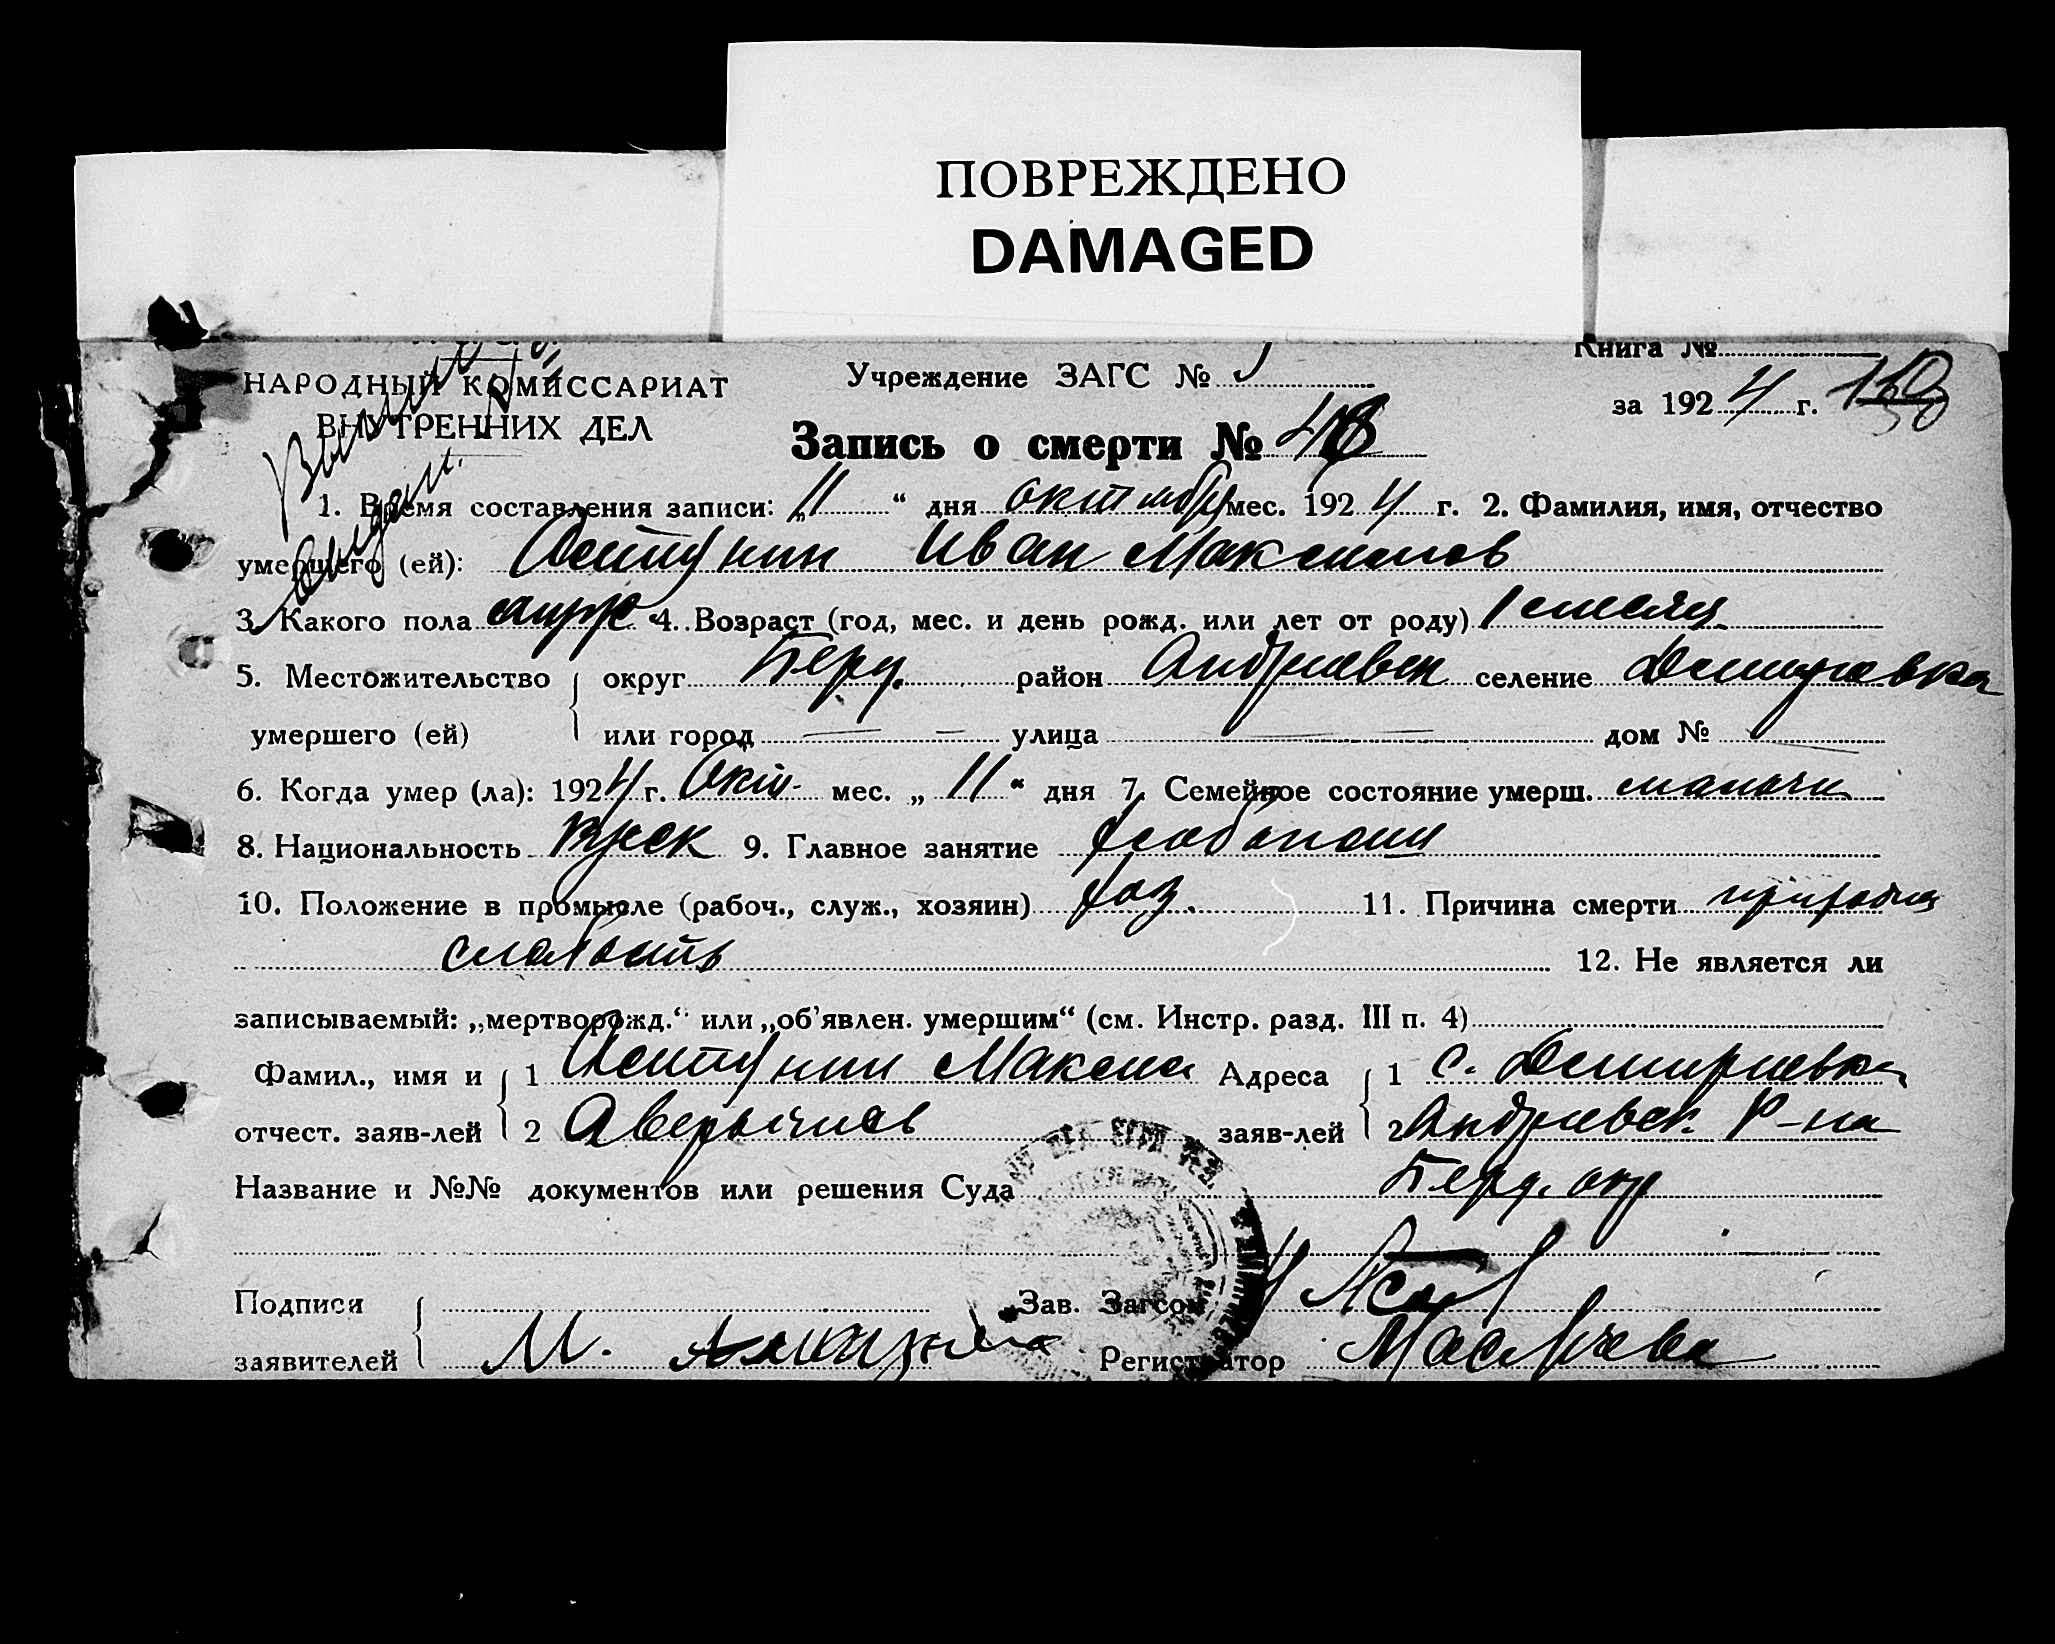 ПОВРЕЖДЕНО
DAMAGED
Книга №
НАРОДНЫЙ КОМИССАРИАТ Учреждение ЗАГС № 1
за 1924 г.
ВНУТРЕННИХ ДЕЛ
Запись о смерти № 48
1. Время составления записи: „11“ дня октября мес. 1924 г. 2. Фамилия, имя, отчество
умершего (ей): Иван Максимов
3. Какого пола муж 4. Возраст (год, мес. и день рожд. или лет от роду) 1 месяц
5. Местожительство округ Берд. район Андриевск селение
умершего (ей) или город улица дом №
6. Когда умер (ла): 1924 г. Окт. мес. „11“ дня 7. Семейное состояние умерш.
8. Национальность Русск 9. Главное занятие хлебопаш
10. Положение в промысле (рабоч., служ., хозяин) хоз. 11. Причина смерти природная
слабость 12. Не является ли
записываемый: „мертворожд.“ или „об'явлен. умершим“ (см. Инстр. разд. III п. 4)
Фамил., имя и 1 Максим Адреса 1 с.
отчест. заяв-лей 2 заяв-лей 2 Андриевск. Р-на
Название и №№ документов или решения Суда Берд. окр
Подписи Зав. Загсом
заявителей М. Регистратор